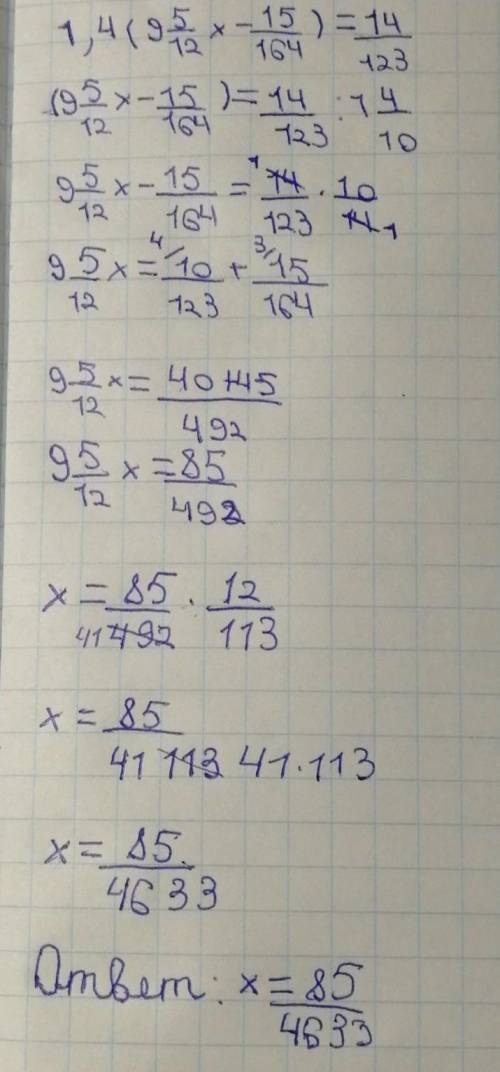 1,4(9 5/12 x - 15/164) = 14/123
(9 5/12 x - 15/164) = 14/123 : 1 4/10
9 5/12 x - 15/164 = 14/123 · 10/14
9 5/12 x = 10/123 + 15/164
9 5/12 x = 40+45/492
9 5/12 x = 85/492
x = 85/492 · 12/113
x = 85/41 113 41·113
x = 85/4633
Ответ: x = 85/4633